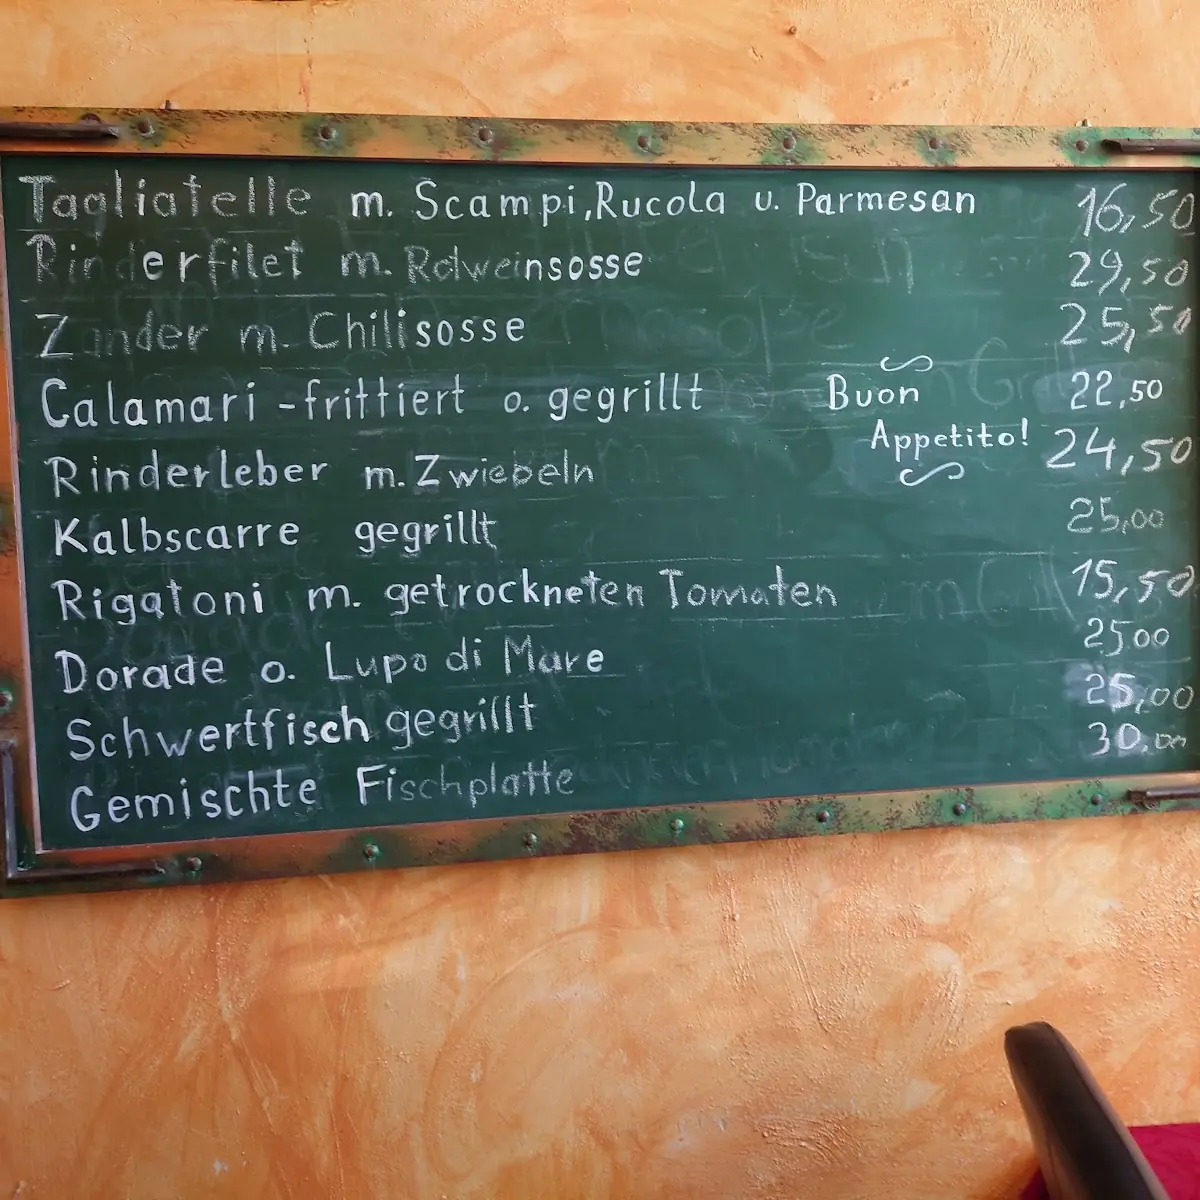 Tagliatelle m. Scampi, Rucola u. Parmesan 16,50
Rinderfilet m. Rotweinsosse 29,50
Zander m. Chilisosse 25,50
Calamari - frittiert o. gegrillt 22,50
Buon
Appetito!
Rinderleber m. Zwiebeln 24,50
Kalbscarre gegrillt 25,00
Rigatoni m. getrockneten Tomaten 15,50
Dorade o. Lupo di Mare 2500
Schwertfisch gegrillt 25,00
Gemischte Fischplatte 30,00